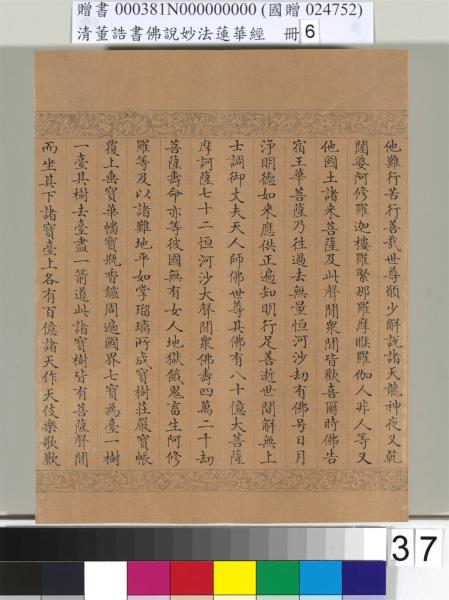 贈書 000381N000000000 (國贈 024752)
清董誥書佛說妙法蓮華經 冊 6
他難行苦行善哉世尊願少解說諸天龍神夜叉乾
闥婆阿修羅迦樓羅緊那羅摩睺羅伽人非人等又
他國土諸來菩薩及此聲聞眾聞皆歡喜爾時佛告
宿王華菩薩乃往過去無量恒河沙劫有佛号日月
淨明德如來應供正遍知明行足善逝世間解無上
士調御丈夫天人師佛世尊其佛有八十億大菩薩
摩訶薩七十二恒河沙大聲聞眾佛壽四萬二千劫
菩薩壽命亦等彼國無有女人地獄餓鬼畜生阿修
羅等及以諸難地平如掌瑠璃所成寶樹莊嚴寶帳
覆上垂寶華幡寶瓶香鑪周遍國界七寶為臺一樹
一臺其樹去臺盡一箭道此諸寶樹皆有菩薩聲聞
而坐其下諸寶臺上各有百億諸天作天伎樂歌歎
37